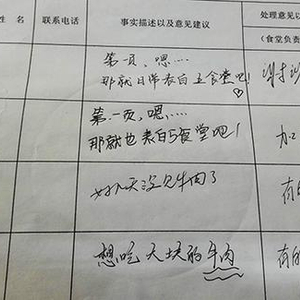 姓 名 联系电话 事实描述以及意见建议 处理意见以
(食堂负责
第一页，嗯……
那就日常表白五食堂吧！♡
谢
第一页，嗯……
那就也表白5食堂吧！
加
好久没见牛肉了
有的
想吃大块的牛肉
有的